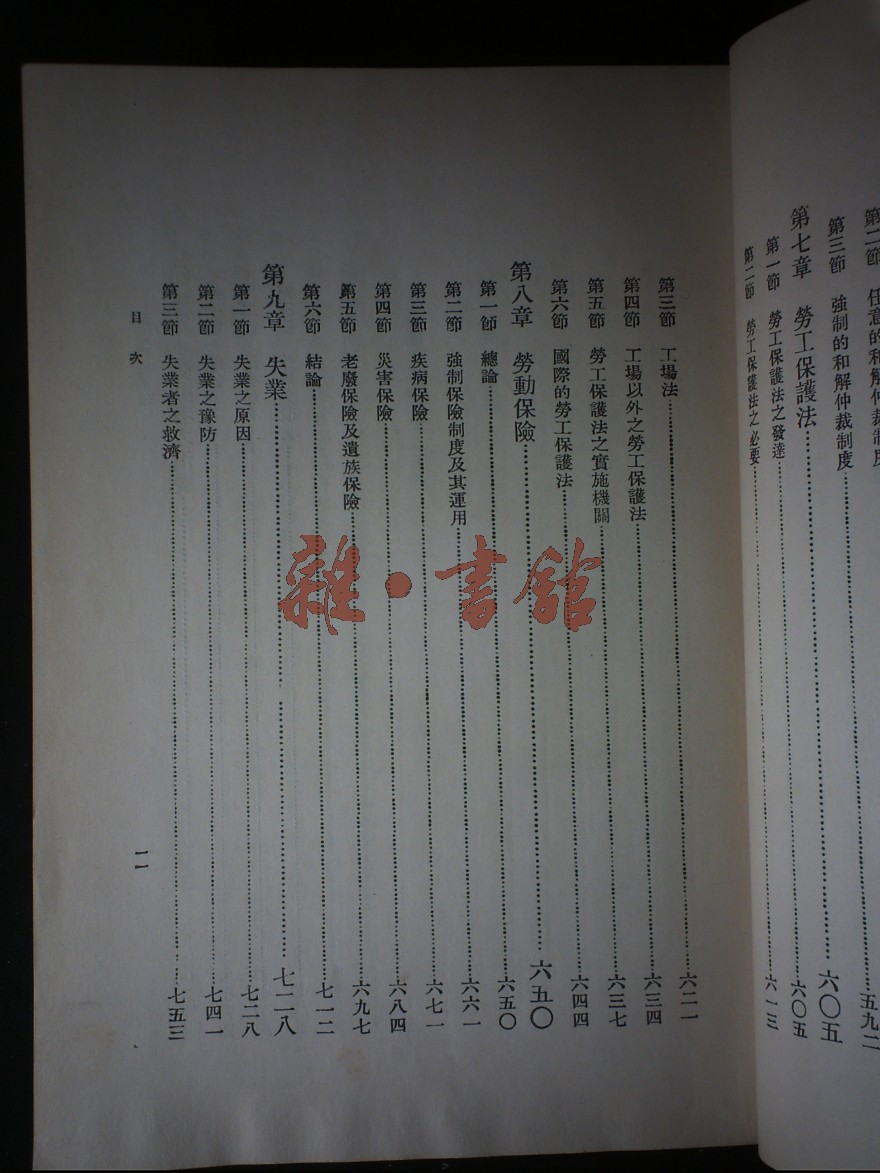 第二節 任意的和解仲裁制度……五九二
第三節 強制的和解仲裁制度……
第七章 勞工保護法……六〇五
第一節 勞工保護法之發達……六〇五
第二節 勞工保護法之必要……六一三
第三節 工場法……六二一
第四節 工場以外之勞工保護法……六三四
第五節 勞工保護法之實施機關……六三七
第六節 國際的勞工保護法……六四四
第八章 勞動保險……六五〇
第一節 總論……六五〇
第二節 強制保險制度及其運用……六六一
第三節 疾病保險……六七一
第四節 災害保險……六八四
第五節 老廢保險及遺族保險……六九七
第六節 結論……七一二
第九章 失業……七二八
第一節 失業之原因……七二八
第二節 失業之豫防……七四一
第三節 失業者之救濟……七五三
目次
一一
雜·書館